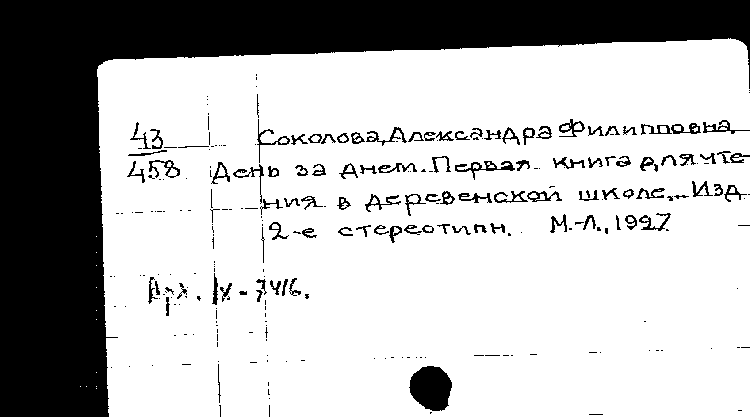 43 Соколова, Александра Филипповна.
458 День за днем.. Первая книга для чте-
ния в деревенской школе... Изд
2-е стереотипн. М.-Л., 1927
Арх. IX - 7416.